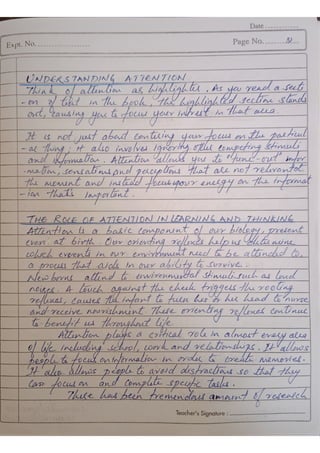 Date ............
Expt. No. ......................
Page No. ..........
UNDERSTANDING ATTENTION
Think of attention as highlighter. As you read a secti
-on of text in the book, the highlighted section stands
out, causing you to focus your interest in that area.
It is not just about centering your focus on the particul
-ar thing; it also involves ignoring other competing stimuli
and information. Attention allows you to "tune-out" infor
-mation, sensations and perceptions that are not relevant at
the moment and instead focus your energy on the informat
-ion that's important.
THE ROLE OF ATTENTION IN LEARNING AND THINKING
Attention is a basic component of our biology, present
even at birth. Our orienting reflexes help us determine
which events in our environment need to be attended to,
a process that aids in our ability to survive.
Newborns attend to environmental stimuli such as loud
noises. A touch against the cheek triggers the rooting
reflexes, causes the infant to turn his or her head to nurse
and receive nourishment. These orienting reflexes continue
to benefit us throughout life.
Attention plays a critical role in almost every area
of life including school, work and relationships. It allows
people to focus on information in order to create memories.
It also allows people to avoid distractions so that they
can focus on and complete specific tasks.
There has been tremendous amount of research
Teacher's Signature : ....................